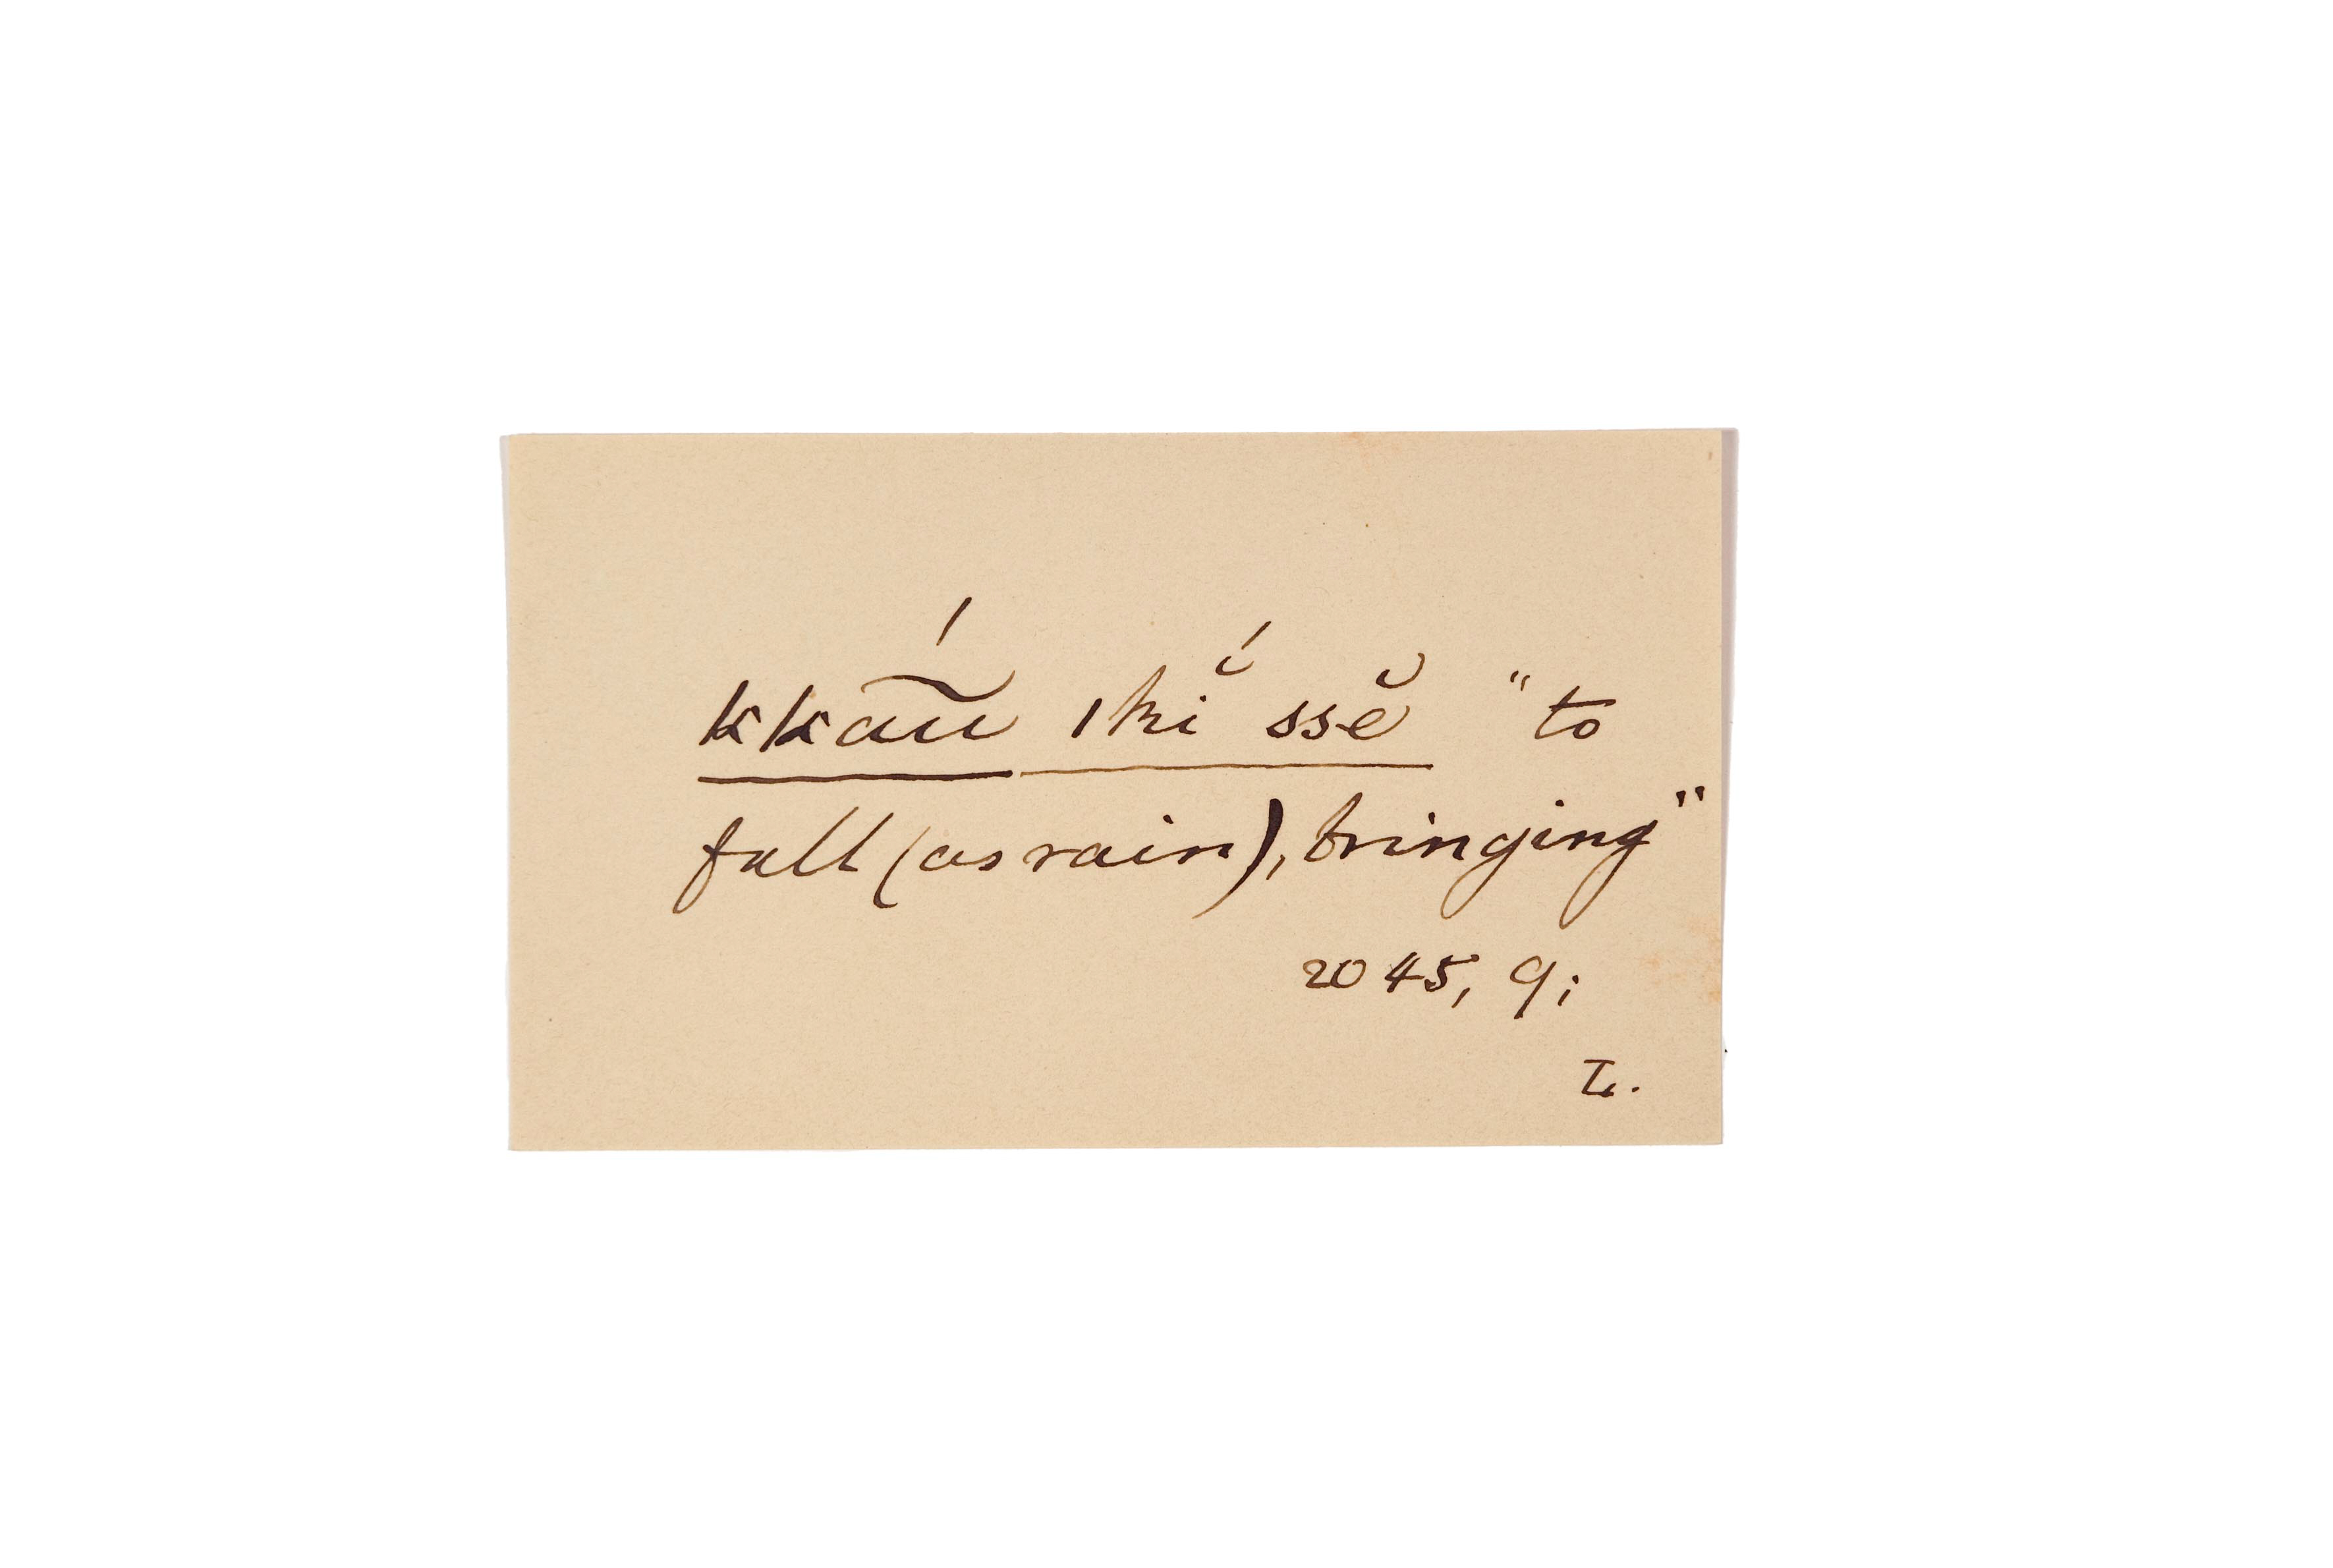 kkā̃́u ıhĭ́ ssĕ "to
fall (as rain), bringing"
2045, 9;
L.